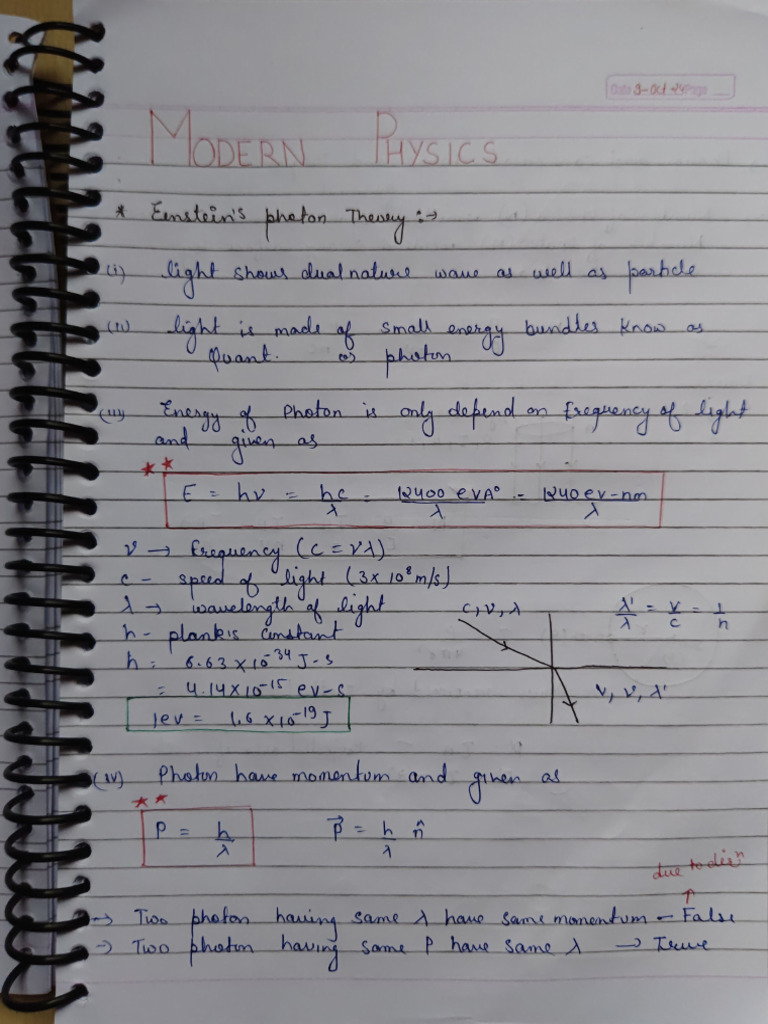 Date 9-Oct-24 Page
MODERN PHYSICS
* Einstein's photon Theory :→
(i) light shows dual nature wave as well as particle
(ii) light is made of small energy bundles Know as
Quant. or photon
(iii) Energy of Photon is only depend on Frequency of light
and given as
★★
E = hν = hc/λ = 12400 eVA°/λ = 1240 ev-nm/λ
ν → Frequency (C = νλ)
c - speed of light (3×10⁸ m/s)
λ → wavelength of light
h - plank's constant
h = 6.63×10⁻³⁴ J-s
= 4.14×10⁻¹⁵ ev-s
1ev = 1.6×10⁻¹⁹ J
C, ν, λ
λ'/λ = V/C = 1/n
V, ν, λ'
(iv) Photon have momentum and given as
★★
P = h/λ
P⃗ = h/λ n̂
due to dirⁿ
↑
→ Two photon having same λ have same momentum – False
→ Two photon having same P have same λ → True